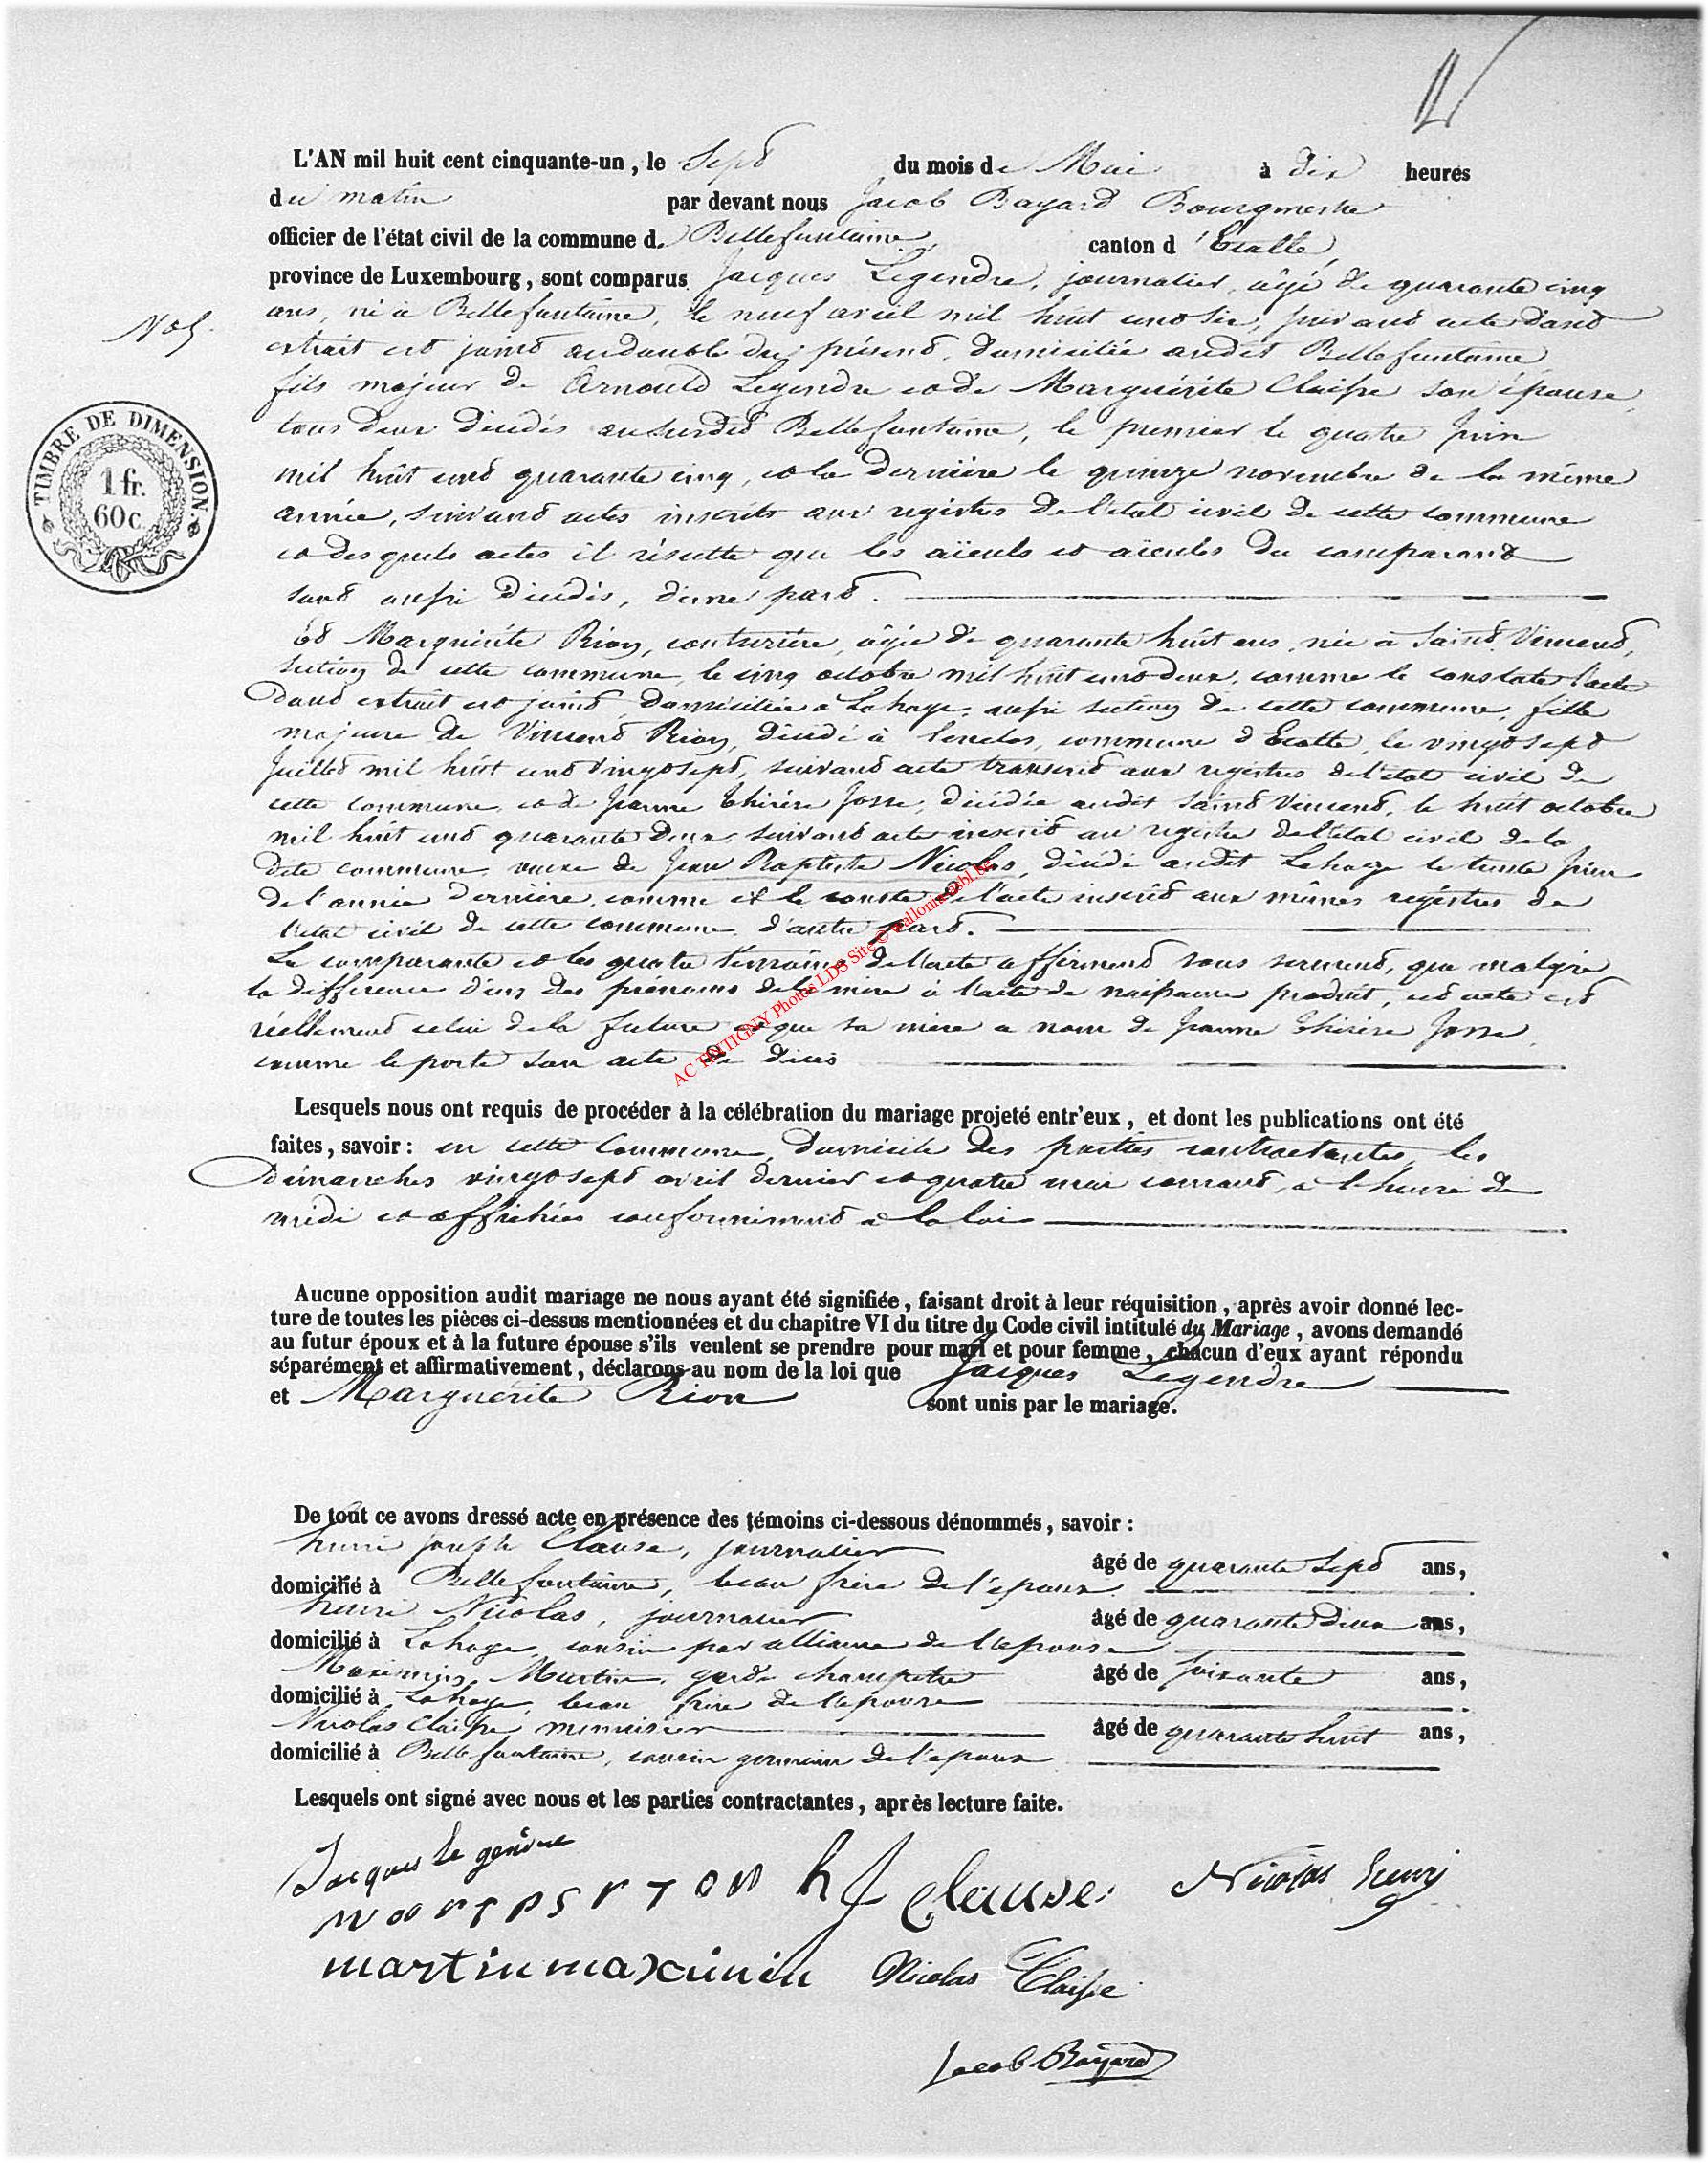 L'AN mil huit cent cinquante-un, le Sept du mois de Mai à dix heures
du matin par devant nous Jacob Bayard Bourgmestre
officier de l'état civil de la commune de Bellefontaine, canton d'Etalle,
province de Luxembourg, sont comparus Jacques Legendre, journalier, âgé de quarante cinq
ans, né à Bellefontaine, le neuf avril mil huit cent six, suivant acte dont
extrait est joint au double du présent, domicilié audit Bellefontaine,
fils majeur de Arnould Legendre et de Marguérite Claisse son épouse,
tous deux décédés au susdit Bellefontaine, le premier le quatre Juin
mil huit cent quarante cinq, et la dernière le quinze novembre de la même
année, suivant actes inscrits aux registres de l'état civil de cette commune
et desquels actes il résulte que les aïeuls et aïeules du comparant
sont aussi décédés, d'une part.
N° 5.
TIMBRE DE DIMENSION.
1 fr.
60 c.
Et Marguérite Rion, couturière, âgée de quarante huit ans, née à Saint Vincent,
section de cette commune, le cinq octobre mil huit cent deux, comme le constate l'acte
dont extrait est joint, domiciliée à Lahage, aussi section de cette commune, fille
majeure de Vincent Rion, décédé à Lenclos, commune d'Etalle, le vingt sept
Juillet mil huit cent vingt sept, suivant acte transcrit aux registres de l'état civil de
cette commune, et de Jeanne Thérèse Josse, décédée audit Saint Vincent, le huit octobre
mil huit cent quarante deux, suivant acte inscrit au registre de l'état civil de la
dite commune, veuve de Jean Baptiste Nicolas, décédé audit Lahage le trente Juin
de l'année dernière, comme il le conste de l'acte inscrit aux mêmes registres de
l'état civil de cette commune, d'autre part.
La comparante et les quatre témoins de l'acte affirment sous serment, que malgré
la différence d'un des prénoms de la mère à l'acte de naissance produit, cet acte est
réellement celui de la future et que sa mère a nom de Jeanne Thérèse Josse,
comme le porte son acte de décès
AC TINTIGNY Photos LDS Site
Lesquels nous ont requis de procéder à la célébration du mariage projeté entr'eux, et dont les publications ont été
faites, savoir: en cette Commune, domicile des parties contractantes, les
Dimanches vingt sept avril dernier et quatre mai courant, à l'heure de
midi et affichées conformément à la loi
Aucune opposition audit mariage ne nous ayant été signifiée, faisant droit à leur réquisition, après avoir donné lec-
ture de toutes les pièces ci-dessus mentionnées et du chapitre VI du titre du Code civil intitulé du Mariage, avons demandé
au futur époux et à la future épouse s'ils veulent se prendre pour mari et pour femme, chacun d'eux ayant répondu
séparément et affirmativement, déclarons au nom de la loi que Jacques Legendre
et Marguérite Rion sont unis par le mariage.
De tout ce avons dressé acte en présence des témoins ci-dessous dénommés, savoir:
henri joseph Clause, journalier âgé de quarante sept ans,
domicilié à Bellefontaine, beau frère de l'époux
henri Nicolas, journalier âgé de quarante deux ans,
domicilié à Lahage, cousin par alliance de l'épouse
Maximin Martin, garde champêtre âgé de soixante ans,
domicilié à Lahage, beau frère de l'épouse
Nicolas Claisse, menuisier âgé de quarante huit ans,
domicilié à Bellefontaine, cousin germain de l'époux
Lesquels ont signé avec nous et les parties contractantes, après lecture faite.
Jacques Le gendre
hJ Clause Nicolas henri
martin maximin Nicolas Claisse
Jacob Bayard